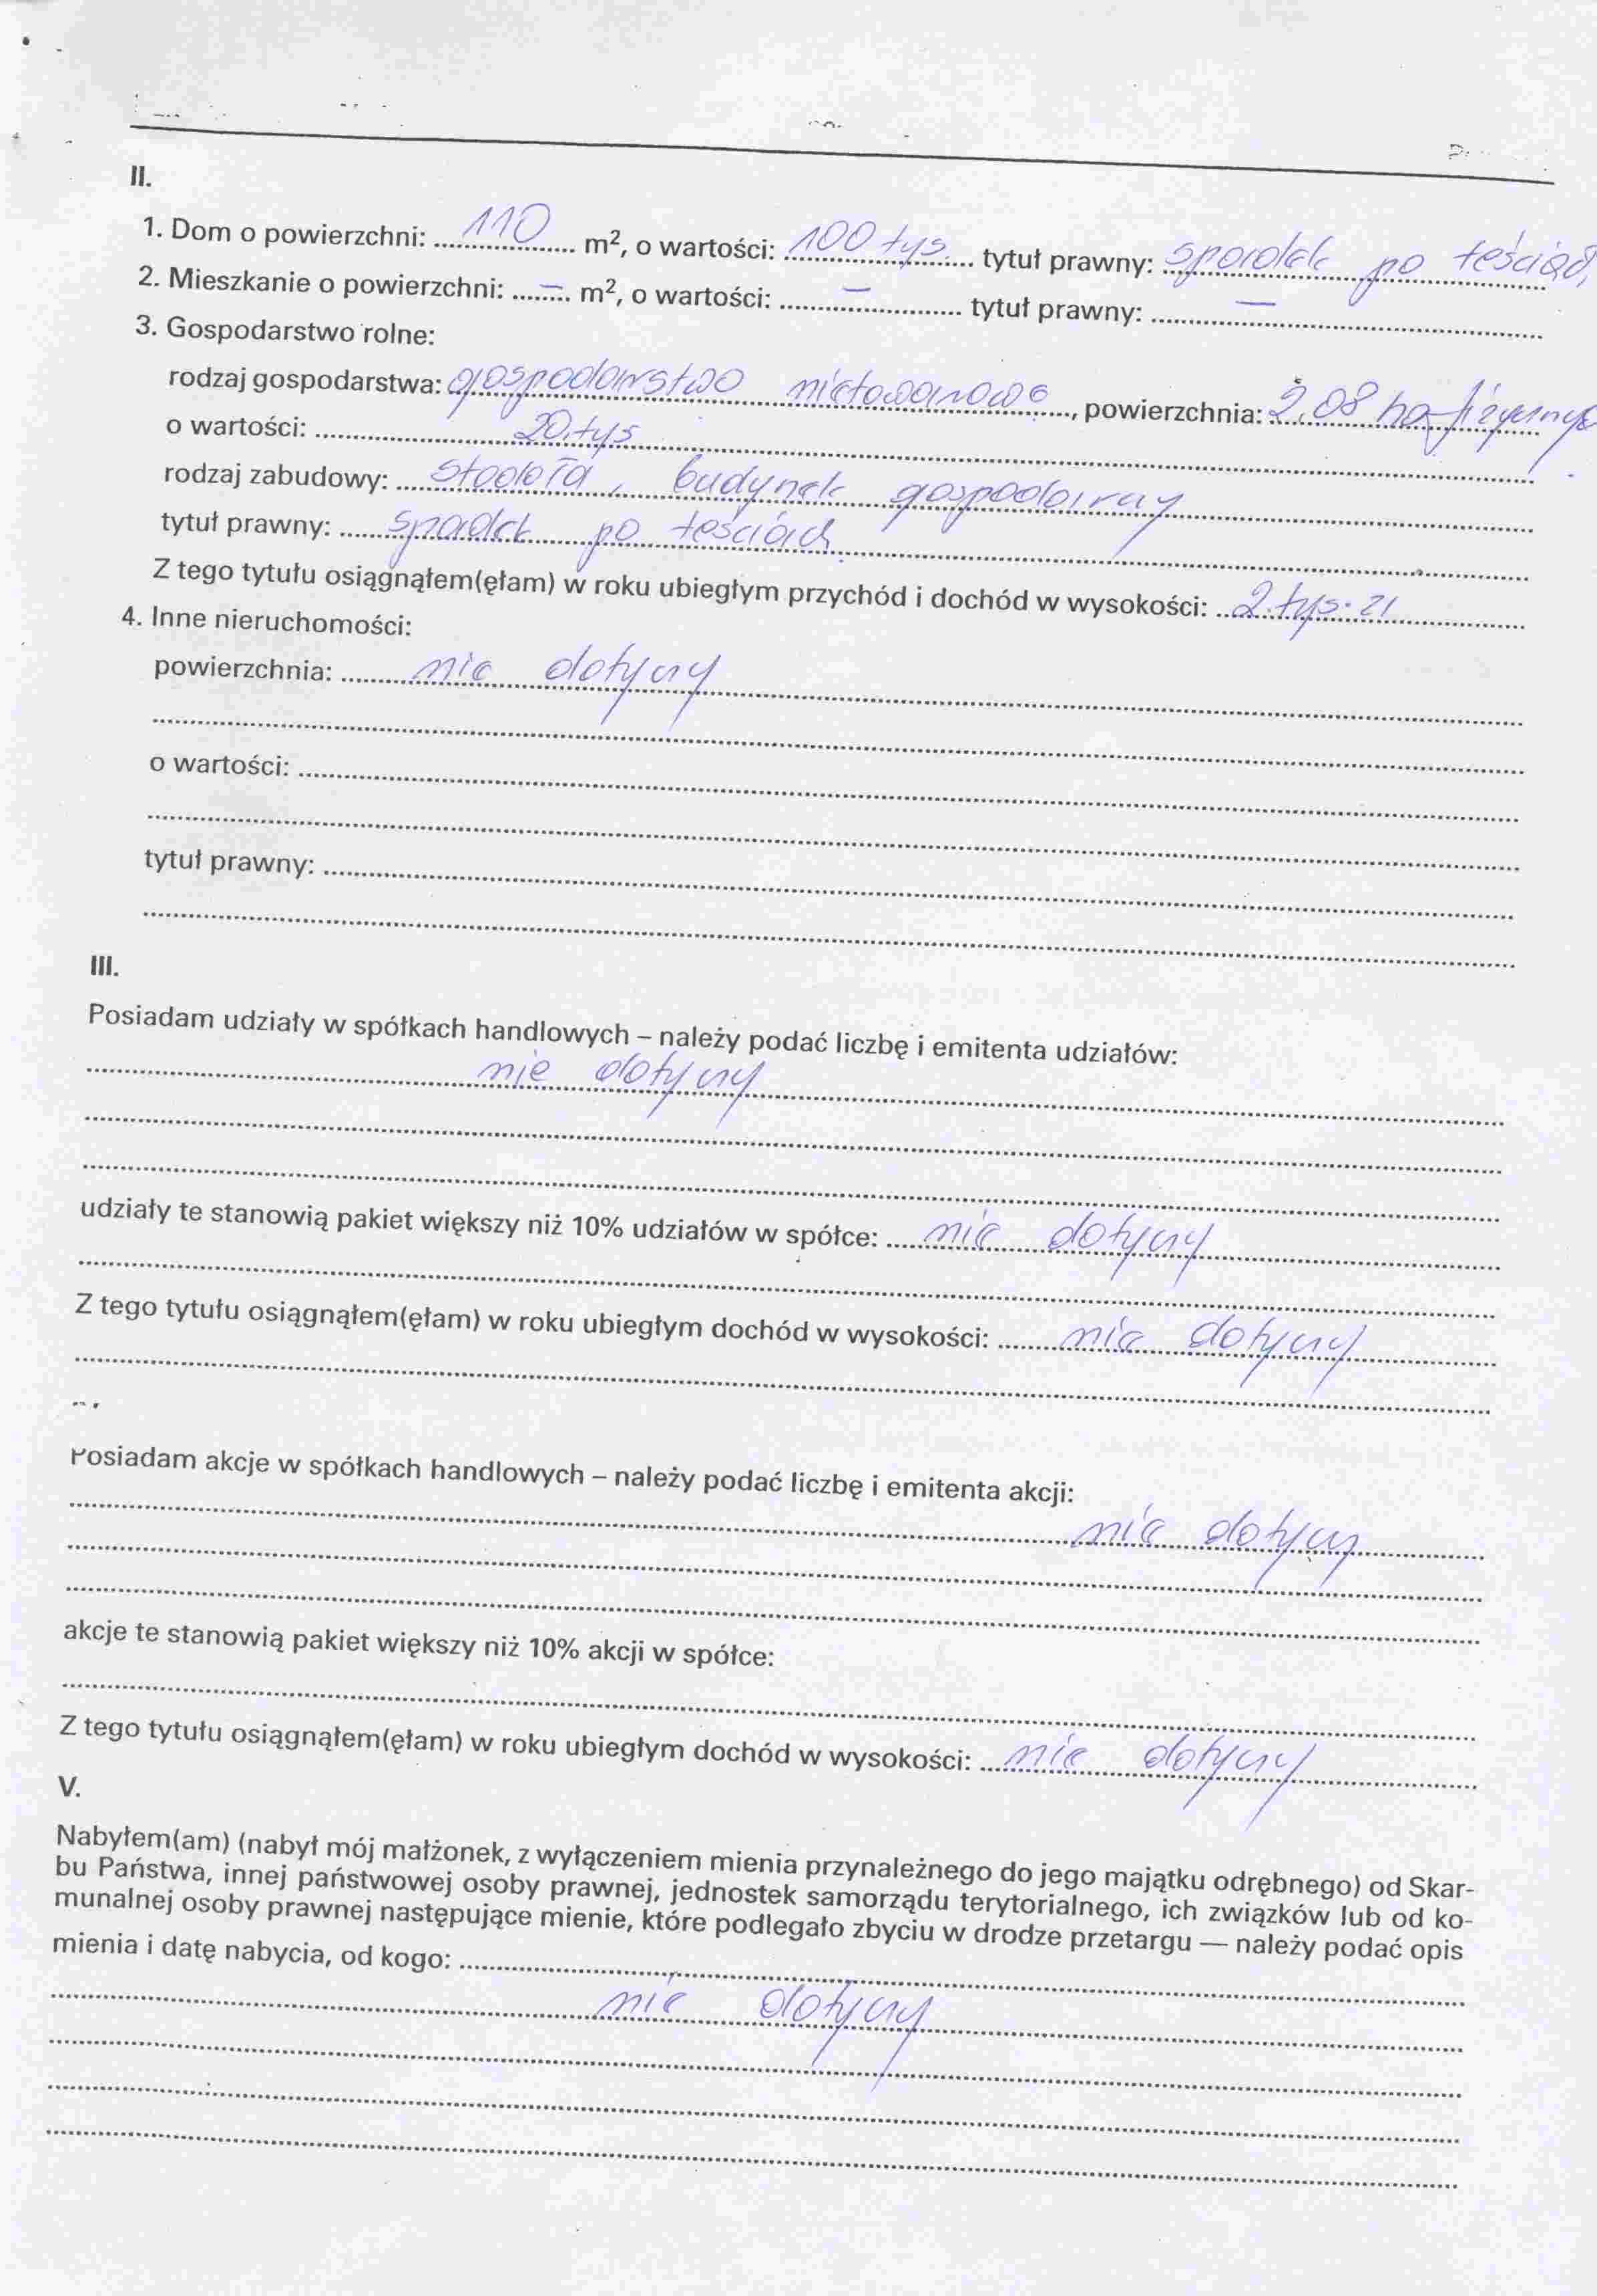 II.
1. Dom o powierzchni: 110 m², o wartości: 100 tys. tytuł prawny: spadek po teściach
2. Mieszkanie o powierzchni: – m², o wartości: – tytuł prawny: –
3. Gospodarstwo rolne:
rodzaj gospodarstwa: gospodarstwo nietowarowe, powierzchnia: 2,08 ha fizycznyc
o wartości: 20 tys
rodzaj zabudowy: stodoła, budynek gospodarczy
tytuł prawny: spadek po teściach
Z tego tytułu osiągnąłem(ęłam) w roku ubiegłym przychód i dochód w wysokości: 2 tys. zł
4. Inne nieruchomości:
powierzchnia: nie dotyczy
o wartości:
tytuł prawny:
III.
Posiadam udziały w spółkach handlowych – należy podać liczbę i emitenta udziałów:
nie dotyczy
udziały te stanowią pakiet większy niż 10% udziałów w spółce: nie dotyczy
Z tego tytułu osiągnąłem(ęłam) w roku ubiegłym dochód w wysokości: nie dotyczy
Posiadam akcje w spółkach handlowych – należy podać liczbę i emitenta akcji:
nie dotyczy
akcje te stanowią pakiet większy niż 10% akcji w spółce:
Z tego tytułu osiągnąłem(ęłam) w roku ubiegłym dochód w wysokości: nie dotyczy
V.
Nabyłem(am) (nabył mój małżonek, z wyłączeniem mienia przynależnego do jego majątku odrębnego) od Skar-
bu Państwa, innej państwowej osoby prawnej, jednostek samorządu terytorialnego, ich związków lub od ko-
munalnej osoby prawnej następujące mienie, które podlegało zbyciu w drodze przetargu — należy podać opis
mienia i datę nabycia, od kogo:
nie dotyczy